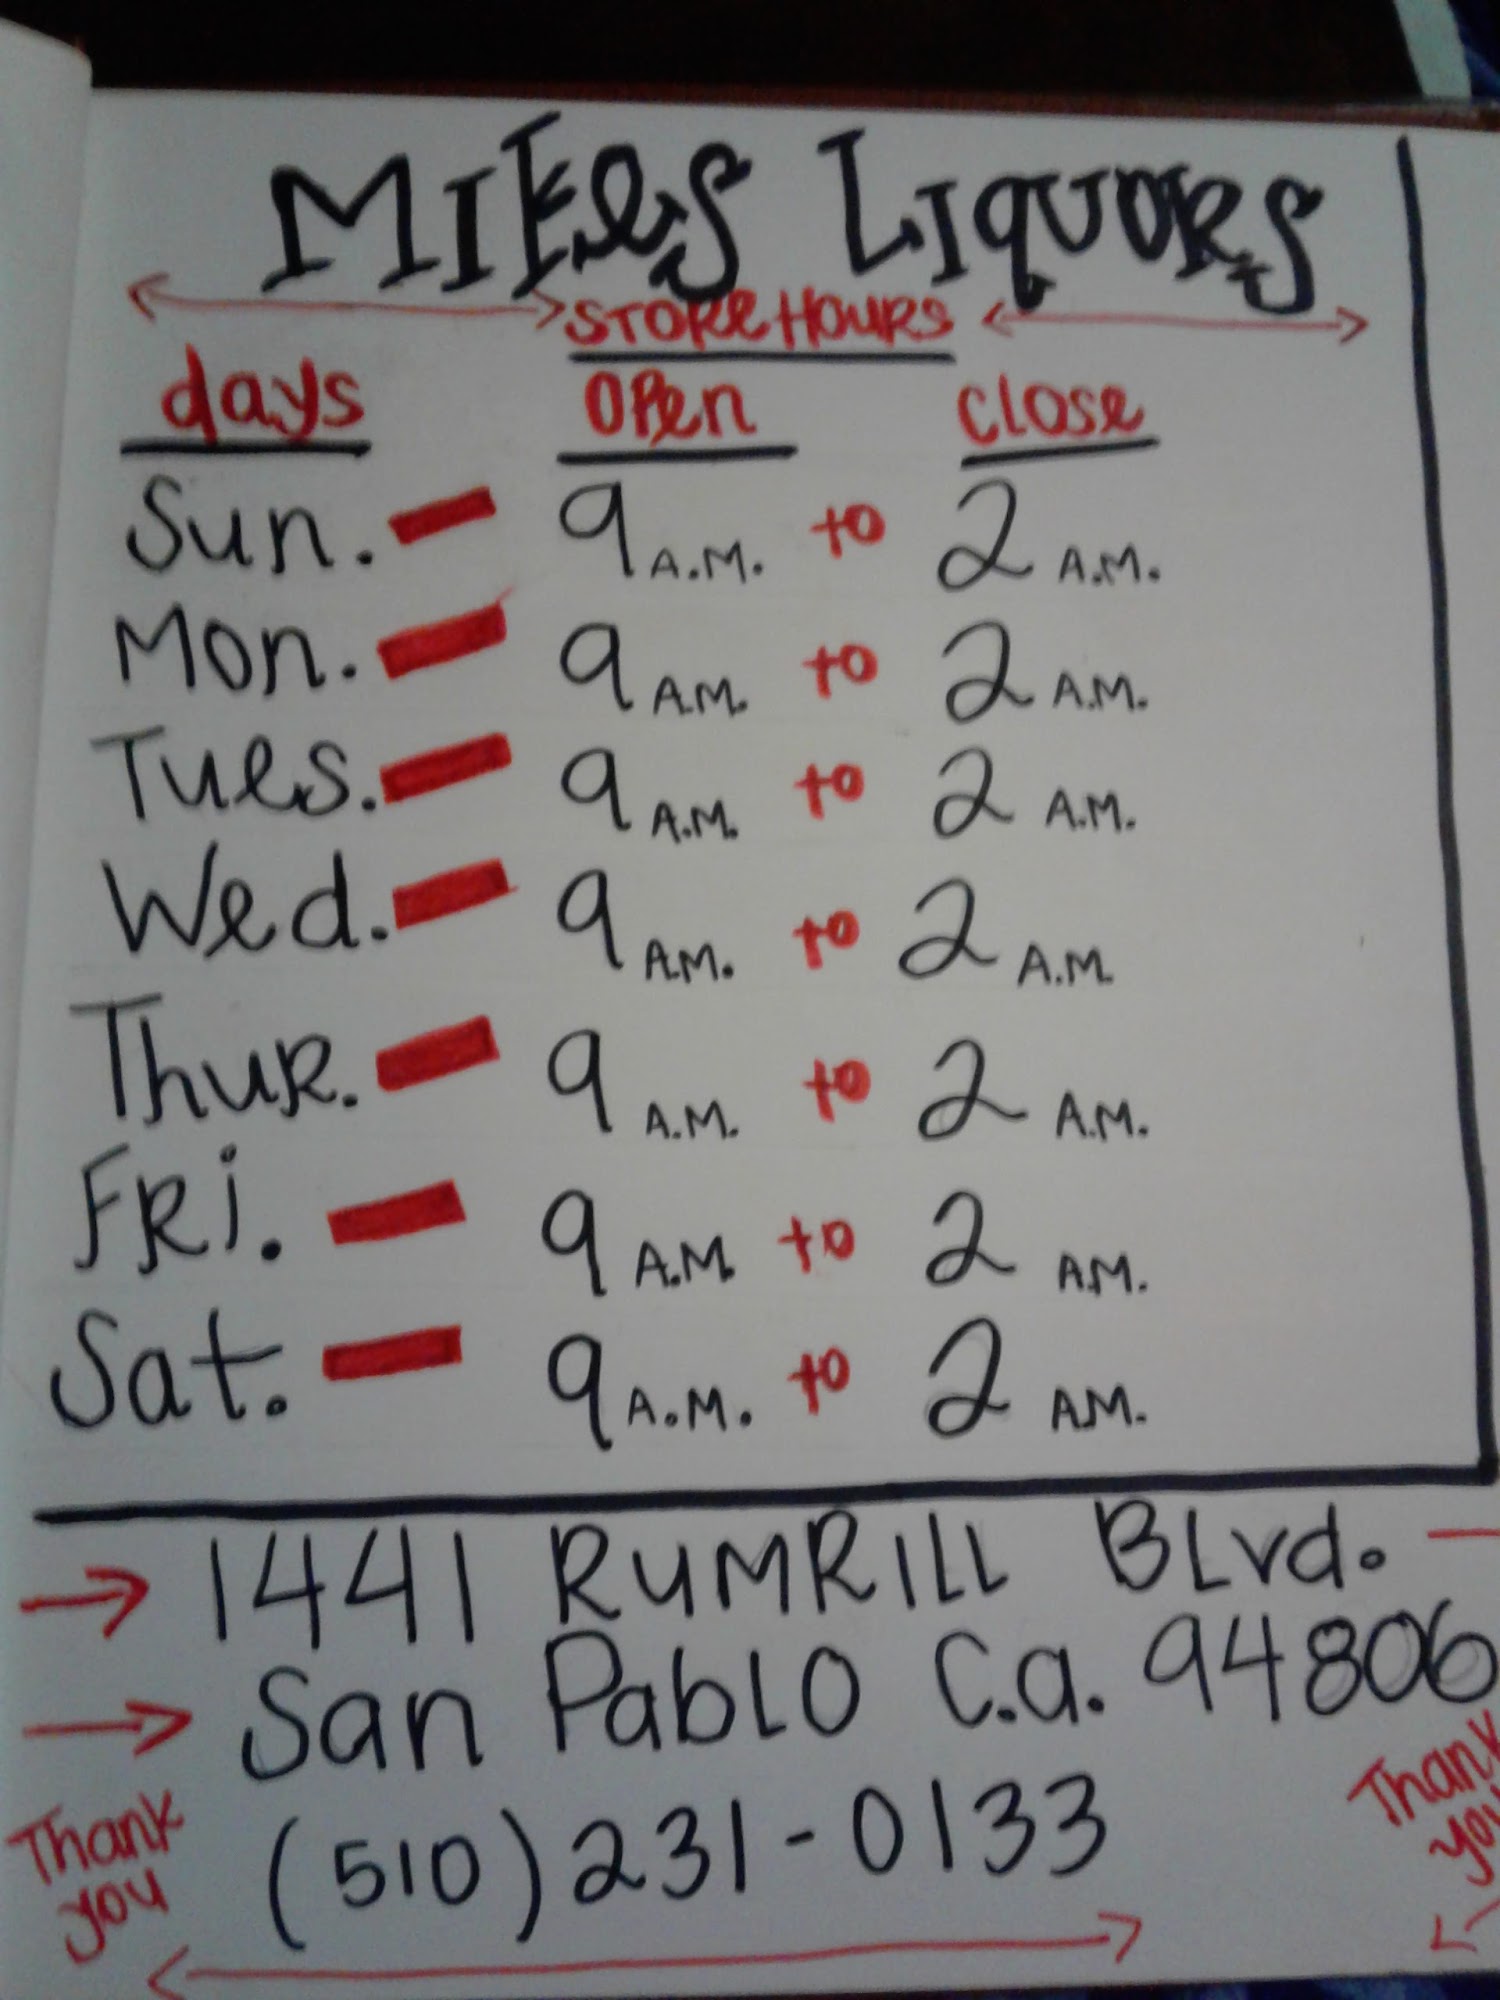 MIKES LIQUORS
STORE HOURS
days OPen Close
Sun. - 9 A.M. to 2 A.M.
Mon. - 9 A.M. to 2 A.M.
Tues. - 9 A.M. to 2 A.M.
Wed. - 9 A.M. to 2 A.M.
Thur. - 9 A.M. to 2 A.M.
FRi. - 9 A.M to 2 AM.
Sat. - 9 A.M. to 2 AM.
1441 RUMRILL BLvd.
San PabLO C.a. 94806
(510) 231-0133
Thank
you
Thank
you